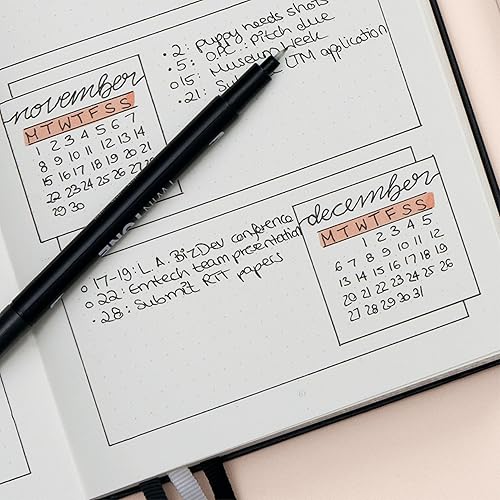 november
M T W T F S S
1 2 3 4 5 6 7
8 9 10 11 12 13 14
15 16 17 18 19 20 21
22 23 24 25 26 27 28
29 30
• 2: puppy needs shots
• 5: pitch due
o 15: Museum Week
• 21: UTM application
december
M T W T F S S
1 2 3 4 5
6 7 8 9 10 11 12
13 14 15 16 17 18 19
20 21 22 23 24 25 26
27 28 29 30 31
o 17-19: L.A. BizDev conference
o 22: Emtech team presentation
• 28: Submit RTT papers